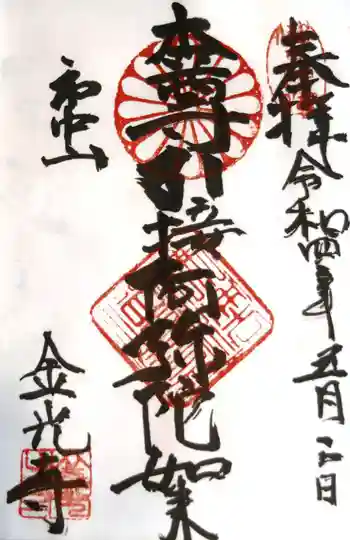 奉拝 令和四年五月二日
本尊引接阿弥陀如来
金光寺